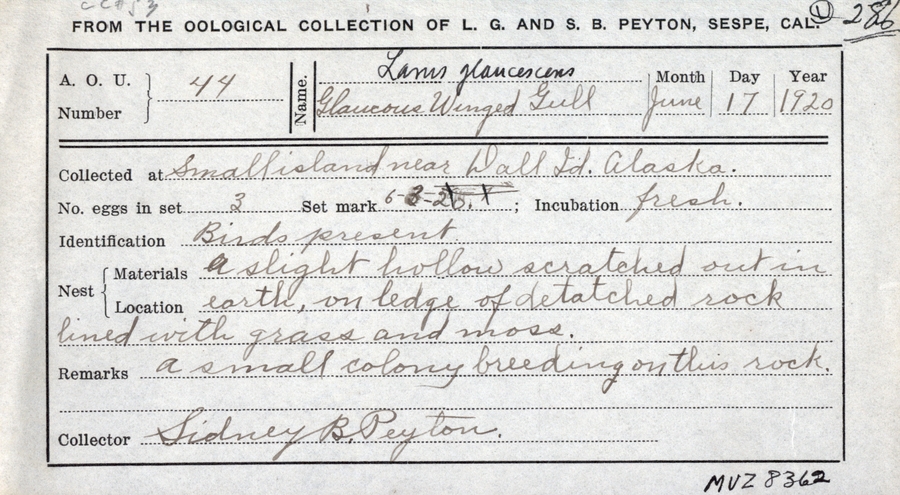 FROM THE OOLOGICAL COLLECTION OF L. G. AND S. B. PEYTON, SESPE, CAL.
A. O. U. Number 44
Name. Larus glaucescens
Glaucous Winged Gull
Month June Day 17 Year 1920
Collected at Small island near Dall Id. Alaska.
No. eggs in set 3 Set mark 6-3-20. ; Incubation fresh.
Identification Birds present
Nest Materials a slight hollow scratched out in
Location earth, on ledge of detatched rock
lined with grass and moss.
Remarks a small colony breeding on this rock.
Collector Sidney B. Peyton.
MVZ 8362